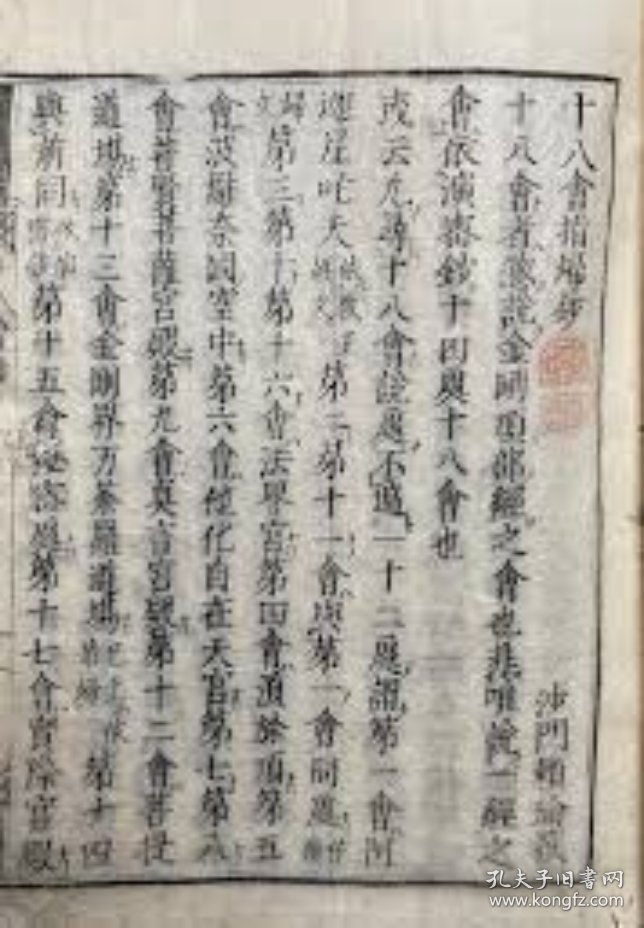 十八會指歸鈔
沙門賴瑜
十八會者說金剛頂部經之會也非唯說一經之
會依演密鈔十四與十八會也
或云凡尋十八會說處不過一十二處謂第一會阿
迦尼吒天 第二第十一會與第一會同處
第三第十第十六會法界宮第四會須弥頂第五
會波羅奈國空中第六會他化自在天宮第七第八
會普賢菩薩宮殿第九會真言宮殿第十二會菩提
道場第十三會金剛界万荼羅道場 第十四
與前同 第十五會秘密處第十七會實際宮殿
孔夫子旧书网
www.kongfz.com